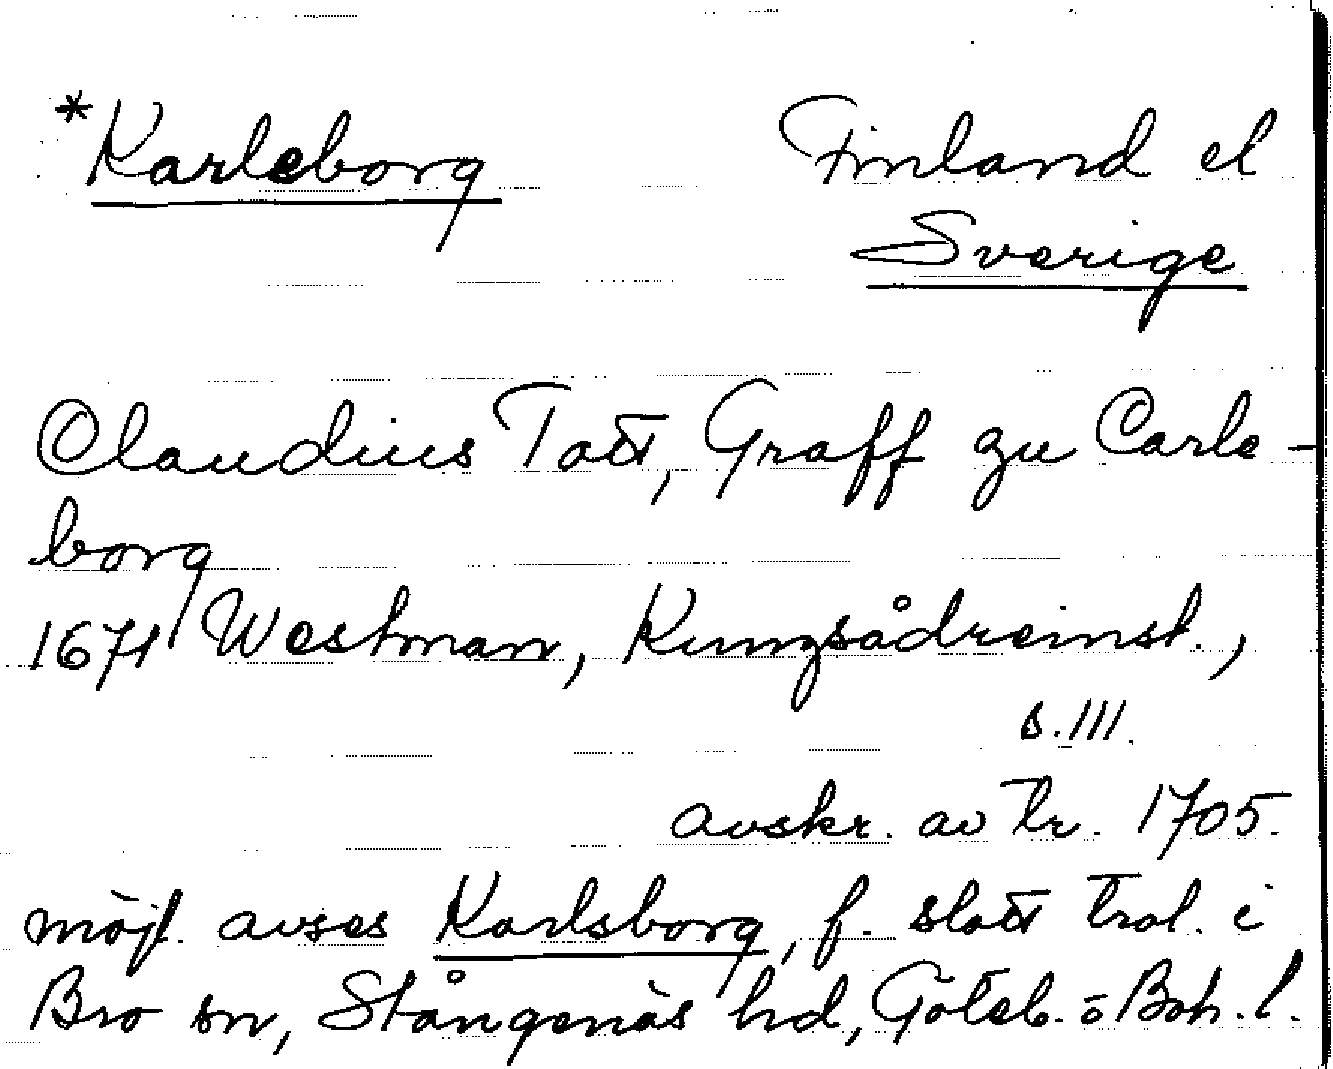 *Karleborg Finland el
Sverige
Claudius Tott, Graff zu Carle-
borg
1671 Westman, Kungsådreinst.,
s. III.
avskr. av tr. 1705.
möjl. avses Karlsborg, f. slott trol. i
Bro sn, Stångenäs hd, Göteb. o Boh. l.